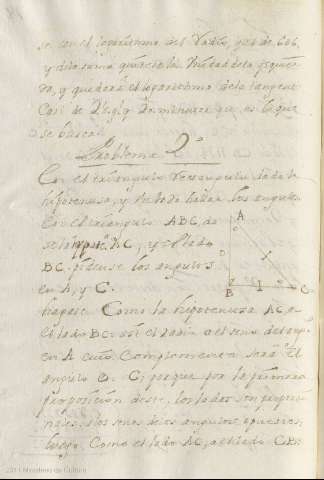 se con el logarithmo del Radio, que es de 606,
y de la suma quitese la Unidad de la izquier
da, y quedará el logarithmo de la tangente
Casi de 21. g. y 2 minutos que es lo que
se buscaba.
Problema 2º
Con el triangulo rectangulo dada la
hipotenusa, y un lado hallar los angulos.
Con el triangulo ABC, da
se la hipotª. AC, y el lado
BC. pidense los angulos
en A, y C.
A
B
C
hagase. Como la hipotenusa AC, a
el lado BC: así el Radio a el seno del ang.
en A cuio Complemento será El
angulo en C; porque por la primera
proposicion deste, los lados son propor
nales, a los senos de los angulos opuestos;
luego. Como el lado AC, al lado CB
2011 Ministerio de Cultura